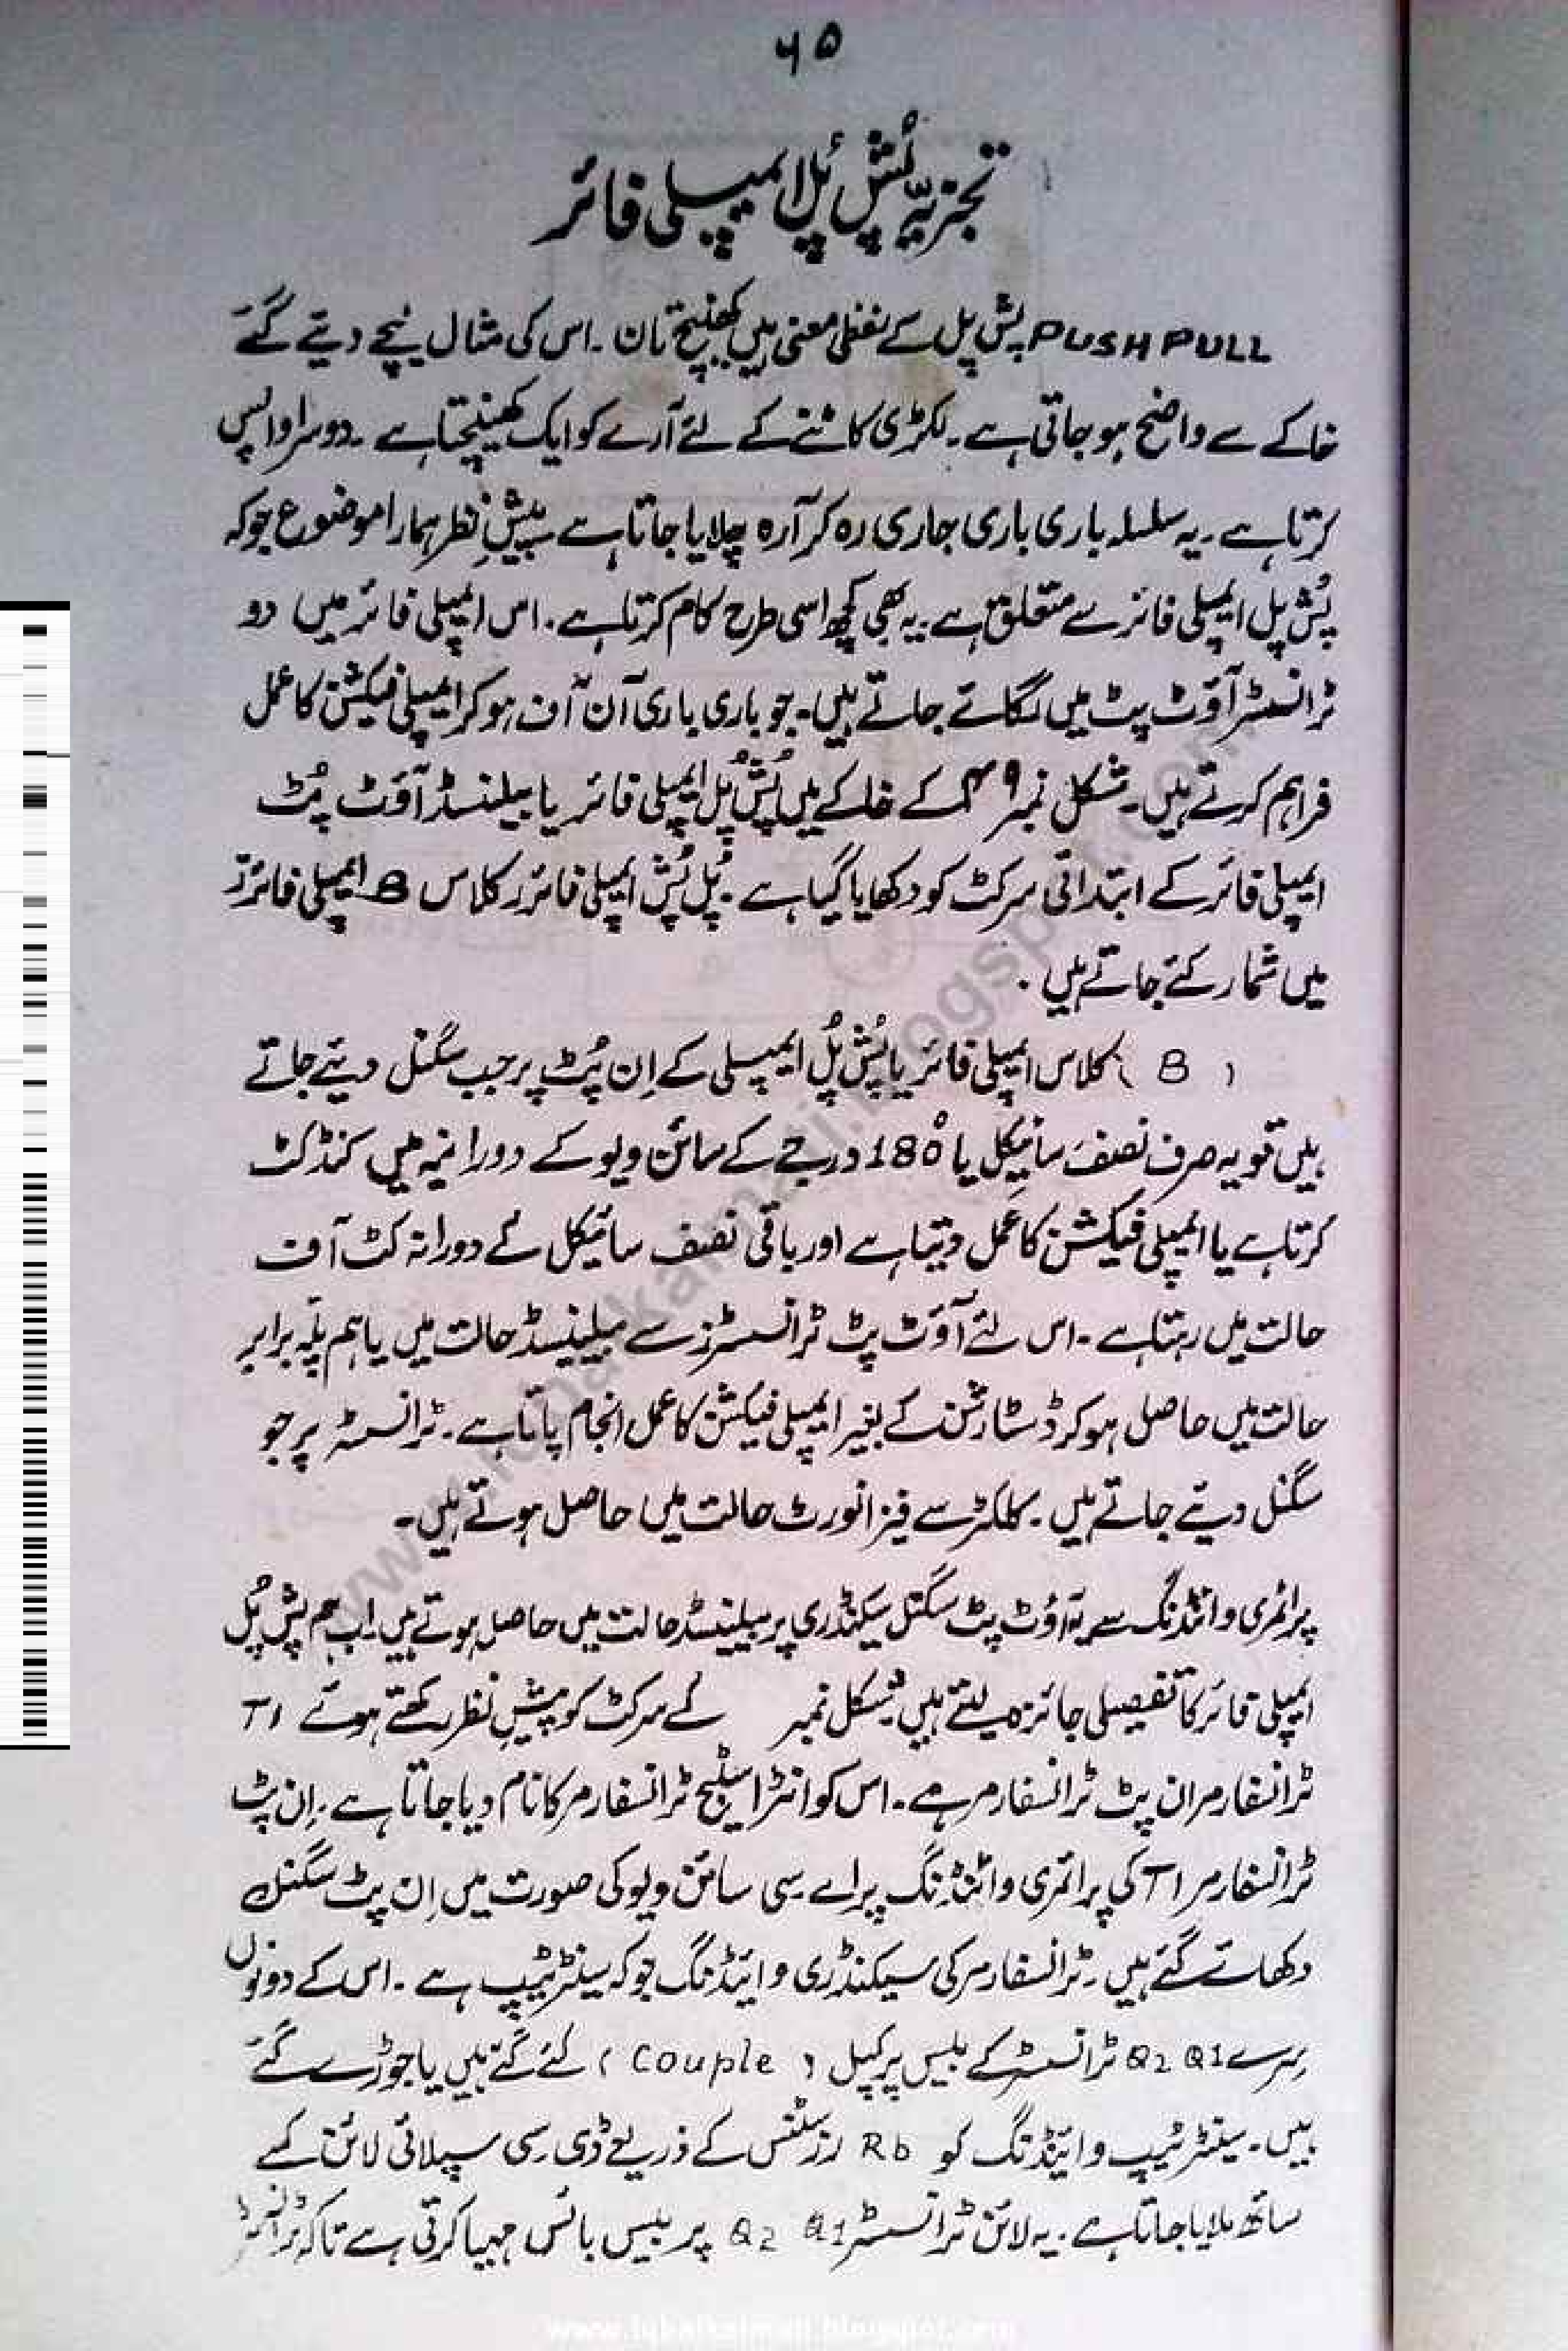 ۶۵
تجزیہ پُش پُل ایمپلی فائر
PUSH PULL پش پل کے لفظی معنی ہیں کھینچ تان ۔ اس کی مثال نیچے دیئے گئے
خاکے سے واضح ہو جاتی ہے ۔ لکڑی کاٹنے کے لئے آرے کو ایک کھینچتا ہے ۔ دوسرا واپس
کرتا ہے ۔ یہ سلسلہ باری باری جاری رہ کر آرہ چلایا جاتا ہے ۔ پیشِ نظر ہمارا موضوع جو کہ
پُش پل ایمپلی فائر سے متعلق ہے ۔ یہ بھی کچھ اسی طرح کام کرتا ہے ۔ اس ایمپلی فائر میں دو
ٹرانسسٹر آؤٹ پٹ میں لگائے جاتے ہیں ۔ جو باری باری آن آف ہو کر ایمپلی فیکشن کا عمل
فراہم کرتے ہیں ۔ شکل نمبر ۴۹ کے خاکے میں پُش پُل ایمپلی فائر یا بیلنسڈ آؤٹ پُٹ
ایمپلی فائر کے ابتدائی سرکٹ کو دکھایا گیا ہے ۔ پُل پُش ایمپلی فائرز کلاس B ایمپلی فائرز
میں شمار کئے جاتے ہیں ۔
( B ) کلاس ایمپلی فائر یا پُش پُل ایمپلی کے اِن پُٹ پر جب سگنل دیئے جاتے
ہیں تو یہ صرف نصف سائیکل یا 180° درجے کے سائن ویو کے دورانیہ میں کنڈکٹ
کرتا ہے یا ایمپلی فیکشن کا عمل دیتا ہے اور باقی نصف سائیکل کے دورانہ کٹ آف
حالت میں رہتا ہے ۔ اس لئے آؤٹ پٹ ٹرانسسٹرز سے بیلینسڈ حالت میں یا ہم پلّہ برابر
حالت میں حاصل ہو کر ڈسٹارشن کے بغیر ایمپلی فیکشن کا عمل انجام پاتا ہے ۔ ٹرانسسٹر پر جو
سگنل دیئے جاتے ہیں ۔ کلکٹر سے فیز انورٹ حالت میں حاصل ہوتے ہیں ۔
پرائمری وائنڈنگ سے یہ آؤٹ پٹ سگنل سیکنڈری پر بیلینسڈ حالت میں حاصل ہوتے ہیں ۔ اب ہم پش پُل
ایمپلی فائر کا تفصیلی جائزہ لیتے ہیں شکل نمبر کے سرکٹ کو پیشِ نظر رکھتے ہوئے T1
ٹرانسفارمر ان پٹ ٹرانسفارمر ہے ۔ اس کو انٹر اسٹیج ٹرانسفارمر کا نام دیا جاتا ہے ۔ اِن پٹ
ٹرانسفارمر T1 کی پرائمری وائنڈنگ پر اے سی سائن ویو کی صورت میں اِن پٹ سگنل
دکھائے گئے ہیں ۔ ٹرانسفارمر کی سیکنڈری وائینڈنگ جو کہ سینٹر ٹیپ ہے ۔ اس کے دونوں
سِرے Q2 Q1 ٹرانسسٹر کے بیس پر کپل ( Couple ) کئے گئے ہیں یا جوڑے گئے
ہیں ۔ سینٹر ٹیپ وائینڈنگ کو Rb رزسٹنس کے ذریعے ڈی سی سپلائی لائن کے
ساتھ ملایا جاتا ہے ۔ یہ لائن ٹرانسسٹر Q2 Q1 پر بیس بائس مہیا کرتی ہے تاکہ ٹرانسسٹر
www.iqbalkalmati.blogspot.com
www.iqbalkalmati.blogspot.com